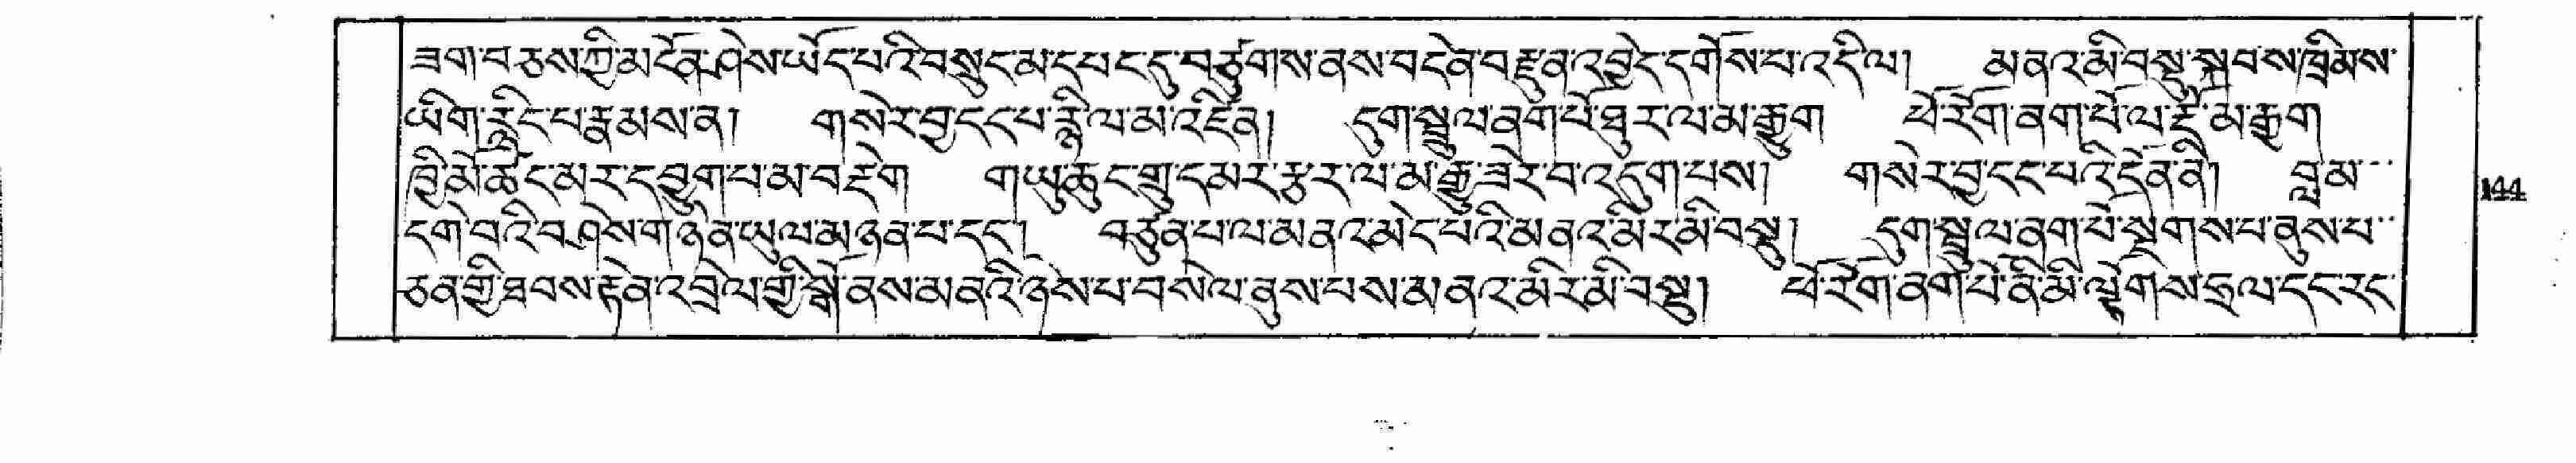 ཟག་བཅས་ཀྱི་མངོན་ཤེས་ཡོད་པའི་བསྲུང་མ་དཔང་དུ་བཙུགས་ནས་བདེན་བརྫུན་འབྱེད་དགོས་པ་འདི་ལ། མནའ་མི་བསྡུ་སྐབས་ཁྲིམས་
ཡིག་རྙིང་པ་རྣམས་ན། གསེར་བྱ་ངང་པ་རྙི་ལ་མ་འཛིན། དུག་སྦྲུལ་ནག་པོ་ཐུར་ལ་མ་རྒྱུག ཕོ་རོག་ནག་པོ་ལ་རྡོ་མ་རྒྱག
ཁྱི་མོ་ཚོང་མར་དབྱུག་པ་མ་བརྡེག གཡུ་ཆུང་གྲུ་དམར་རྩྭར་ལ་མ་རྒྱུ་ཟེར་བ་འདུག་པས། གསེར་བྱ་ངང་པའི་དོན་ནི། བླ་མ་
དགེ་བའི་བཤེས་གཉེན་ཡུལ་མཉན་པ་དང་། བཙུན་པ་ལ་མནའ་མེད་པའི་མནའ་མིར་མི་བསྡུ། དུག་སྦྲུལ་ནག་པོ་སྔགས་པ་ནུས་པ་
ཅན་གྱི་ཐབས་རྟེན་འབྲེལ་གྱི་སྒོ་ནས་མནའི་ཉེས་པ་བསེལ་ནུས་པས་མནའ་མིར་མི་བསྡུ། ཕོ་རོག་ནག་པོ་ནི་མི་ལྟོགས་ཧྲལ་དང་རང་
144